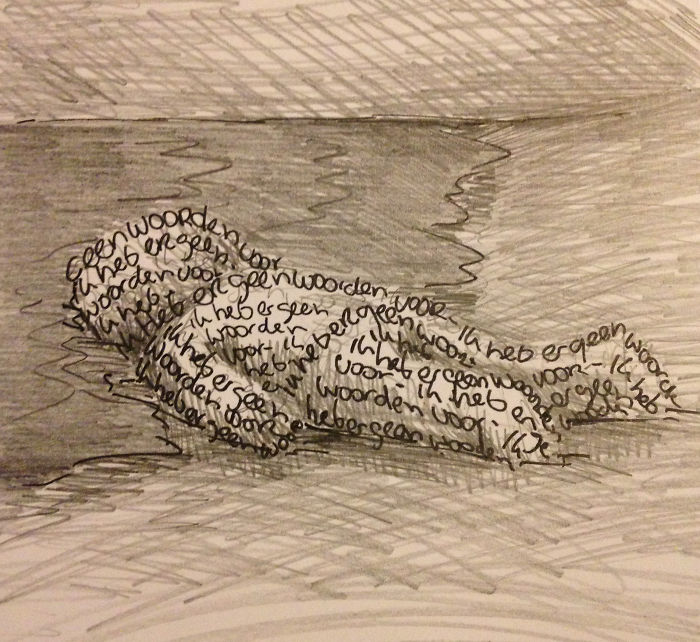 geen woorden voor
ik heb er geen
woorden voor
ik heb
ik heb er geen woorden voor - ik heb er geen woorde
ik heb er geen
woorden
voor - ik
heb
ik heb er geen woor
ik heb
ik heb er geen woorde voor - ik
voor - ik heb er
er geen
ik heb
woorden voor - ik
ik heb er geen
woorden voor
ik heb er geen woor
heb er geen woorden